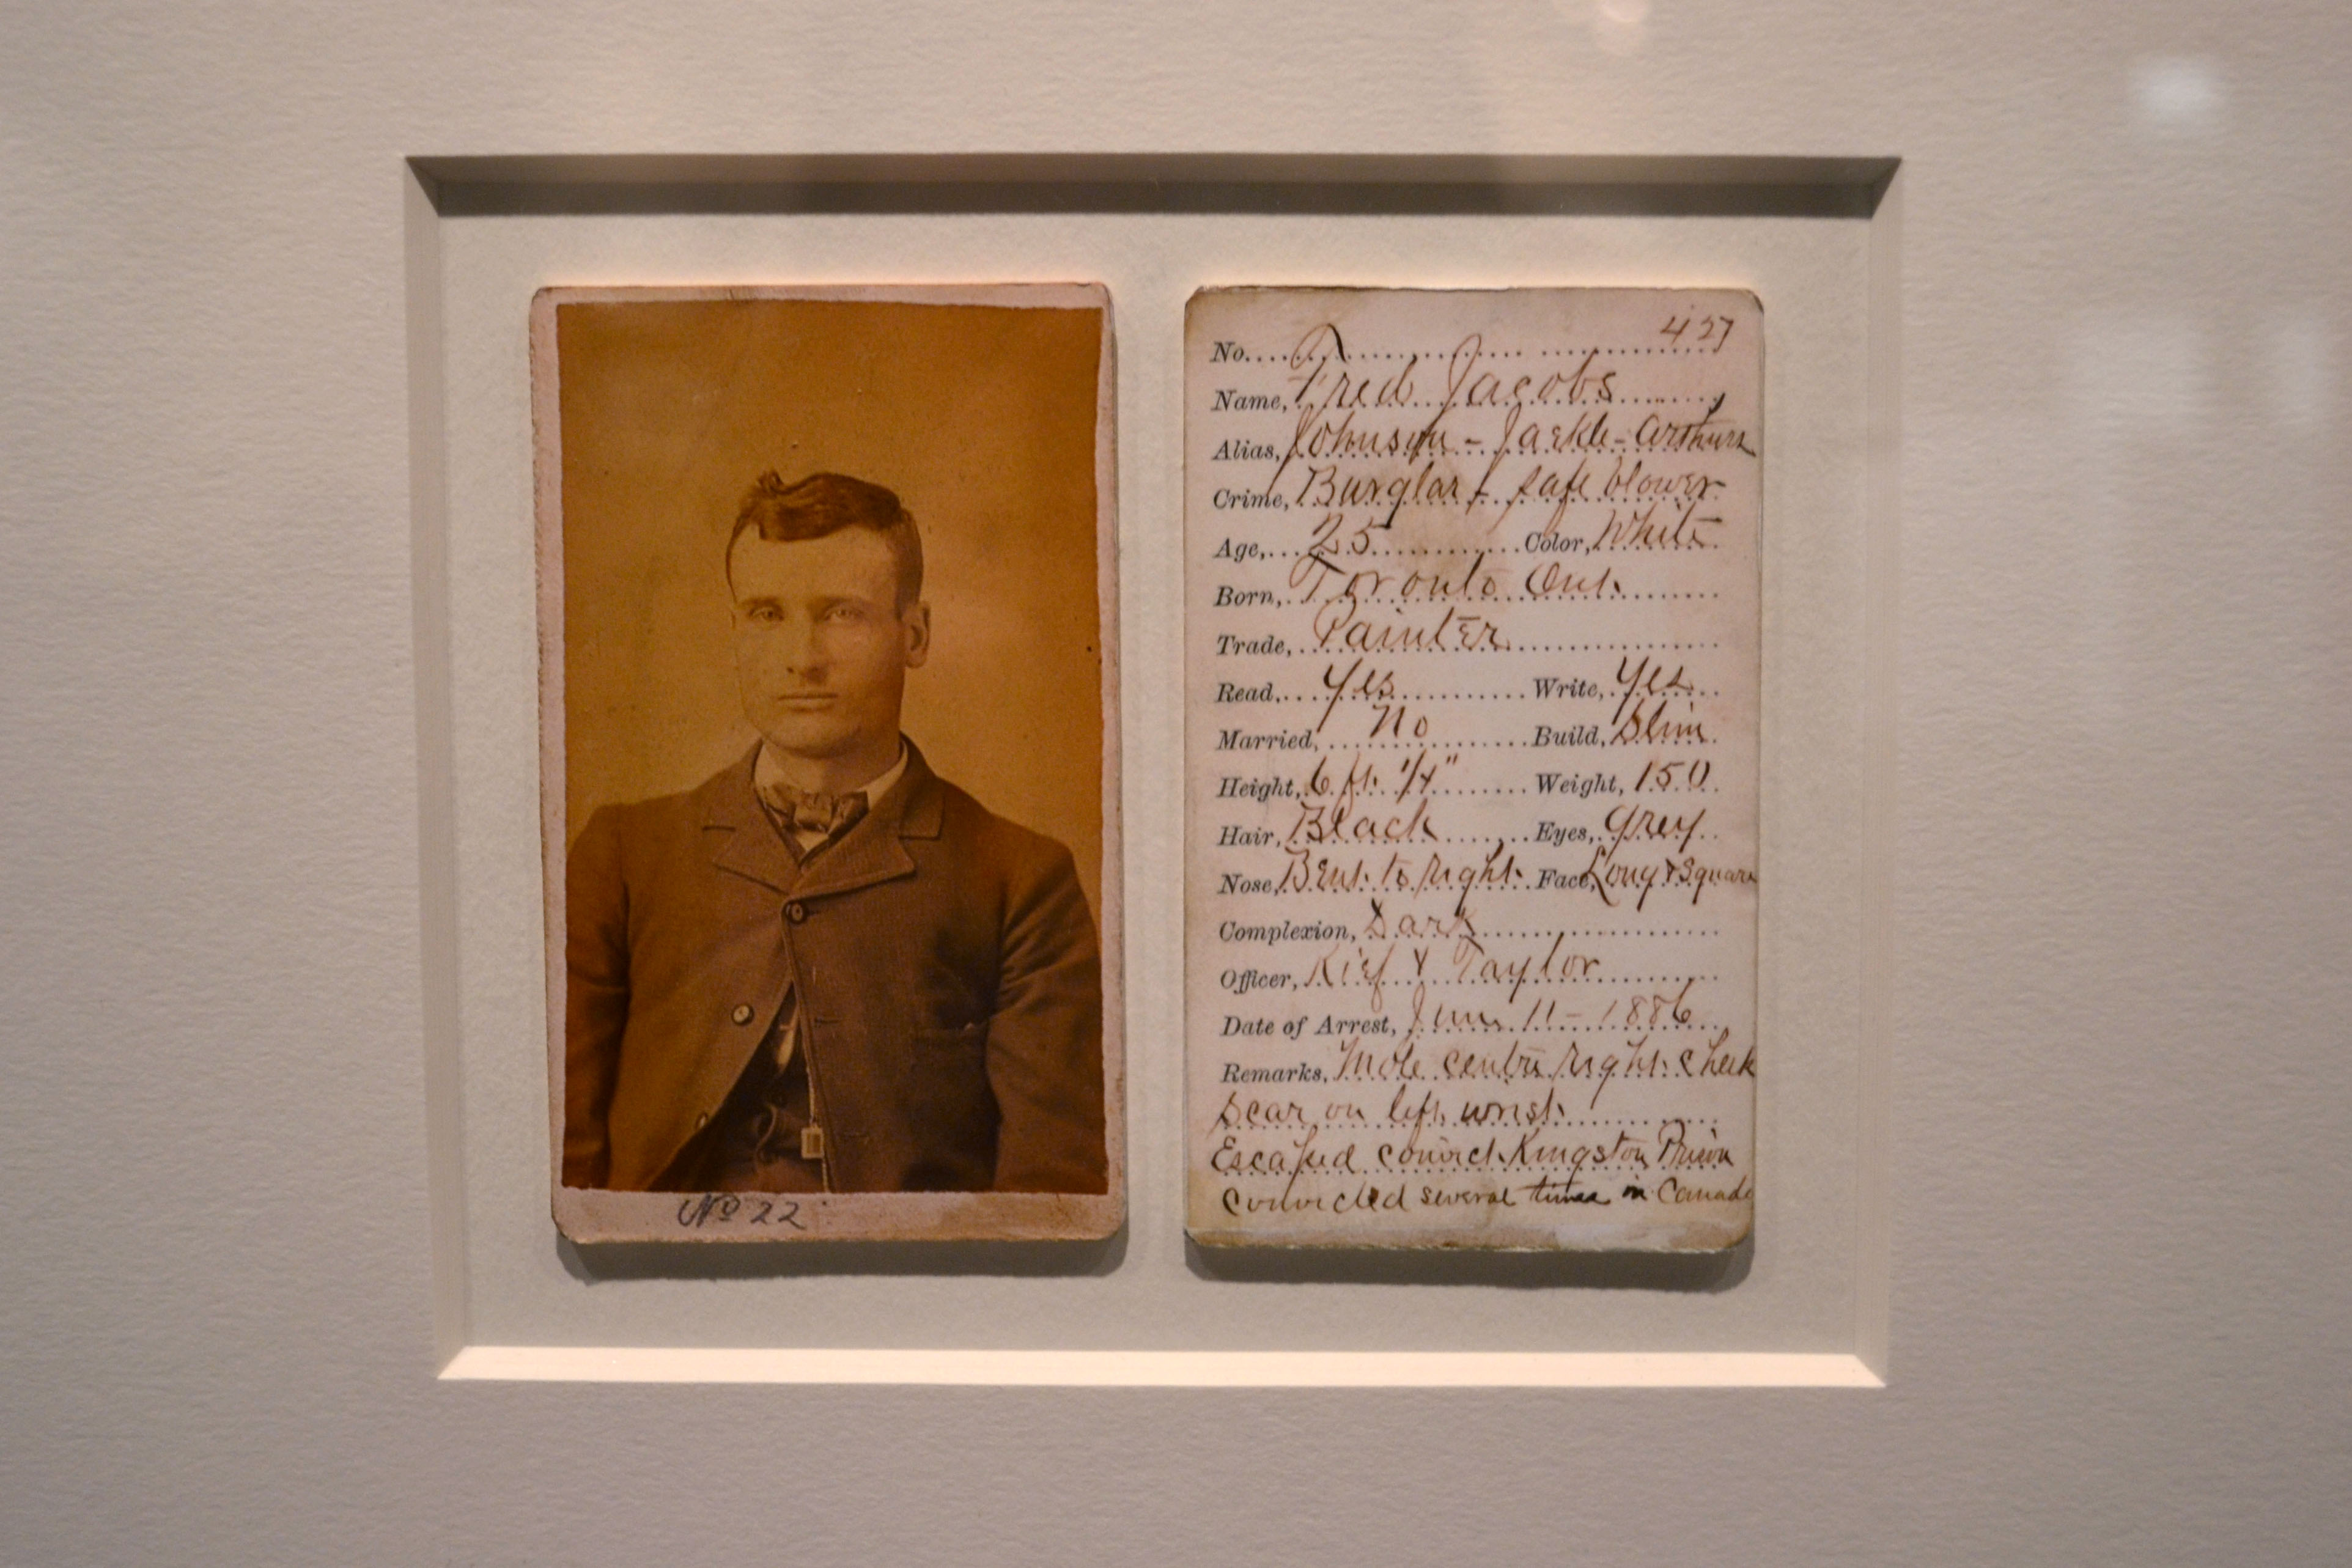 No 22
427
No.
Name, Fred Jacobs
Alias, Johnson - Jackle - Arthurs
Crime, Burglar & safe blower
Age, 25 Color, White
Born, Toronto Ont.
Trade, Painter
Read. Yes Write, Yes
Married, No Build, Slim
Height, 6 ft. 1/4" Weight, 150
Hair, Black Eyes, Grey
Nose, Bent to right Face, Long & Square
Complexion, Dark
Officer, & Taylor
Date of Arrest, June 11 - 1886
Remarks, Mole centre right cheek
Scar on left wrist
Escaped convict Kingston Prison
Convicted several times in Canada